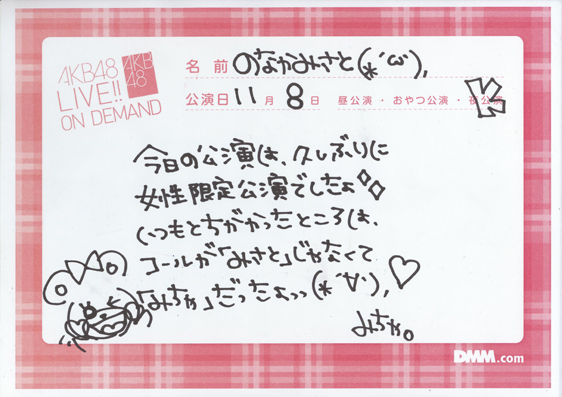 AKB48
LIVE!!
ON DEMAND
AKB
48
名前 のなかみさと(*´ω`),
公演日 11月 8日 昼公演・おやつ公演・夜公演
今日の公演は、久しぶりに
女性限定公演でしたよ
いつもとちがかったところは、
コールが「みさと」じゃなくて
「みちゃ」だったよっっ(*´∀`),♡
みちゃ。
DMM.com